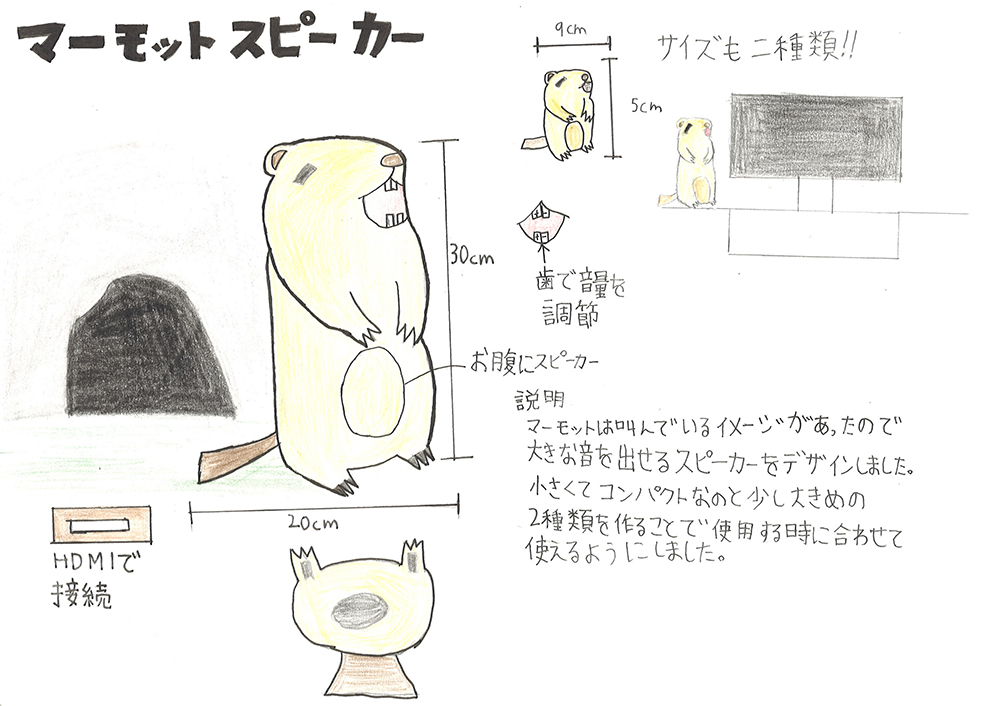 マーモットスピーカー
9cm
サイズも二種類!!
5cm
30cm
歯で音量を
調節
お腹にスピーカー
説明
マーモットは叫んでいるイメージがあったので
大きな音を出せるスピーカーをデザインしました。
小さくてコンパクトなのと少し大きめの
2種類を作ることで使用する時に合わせて
使えるようにしました。
20cm
HDMIで
接続